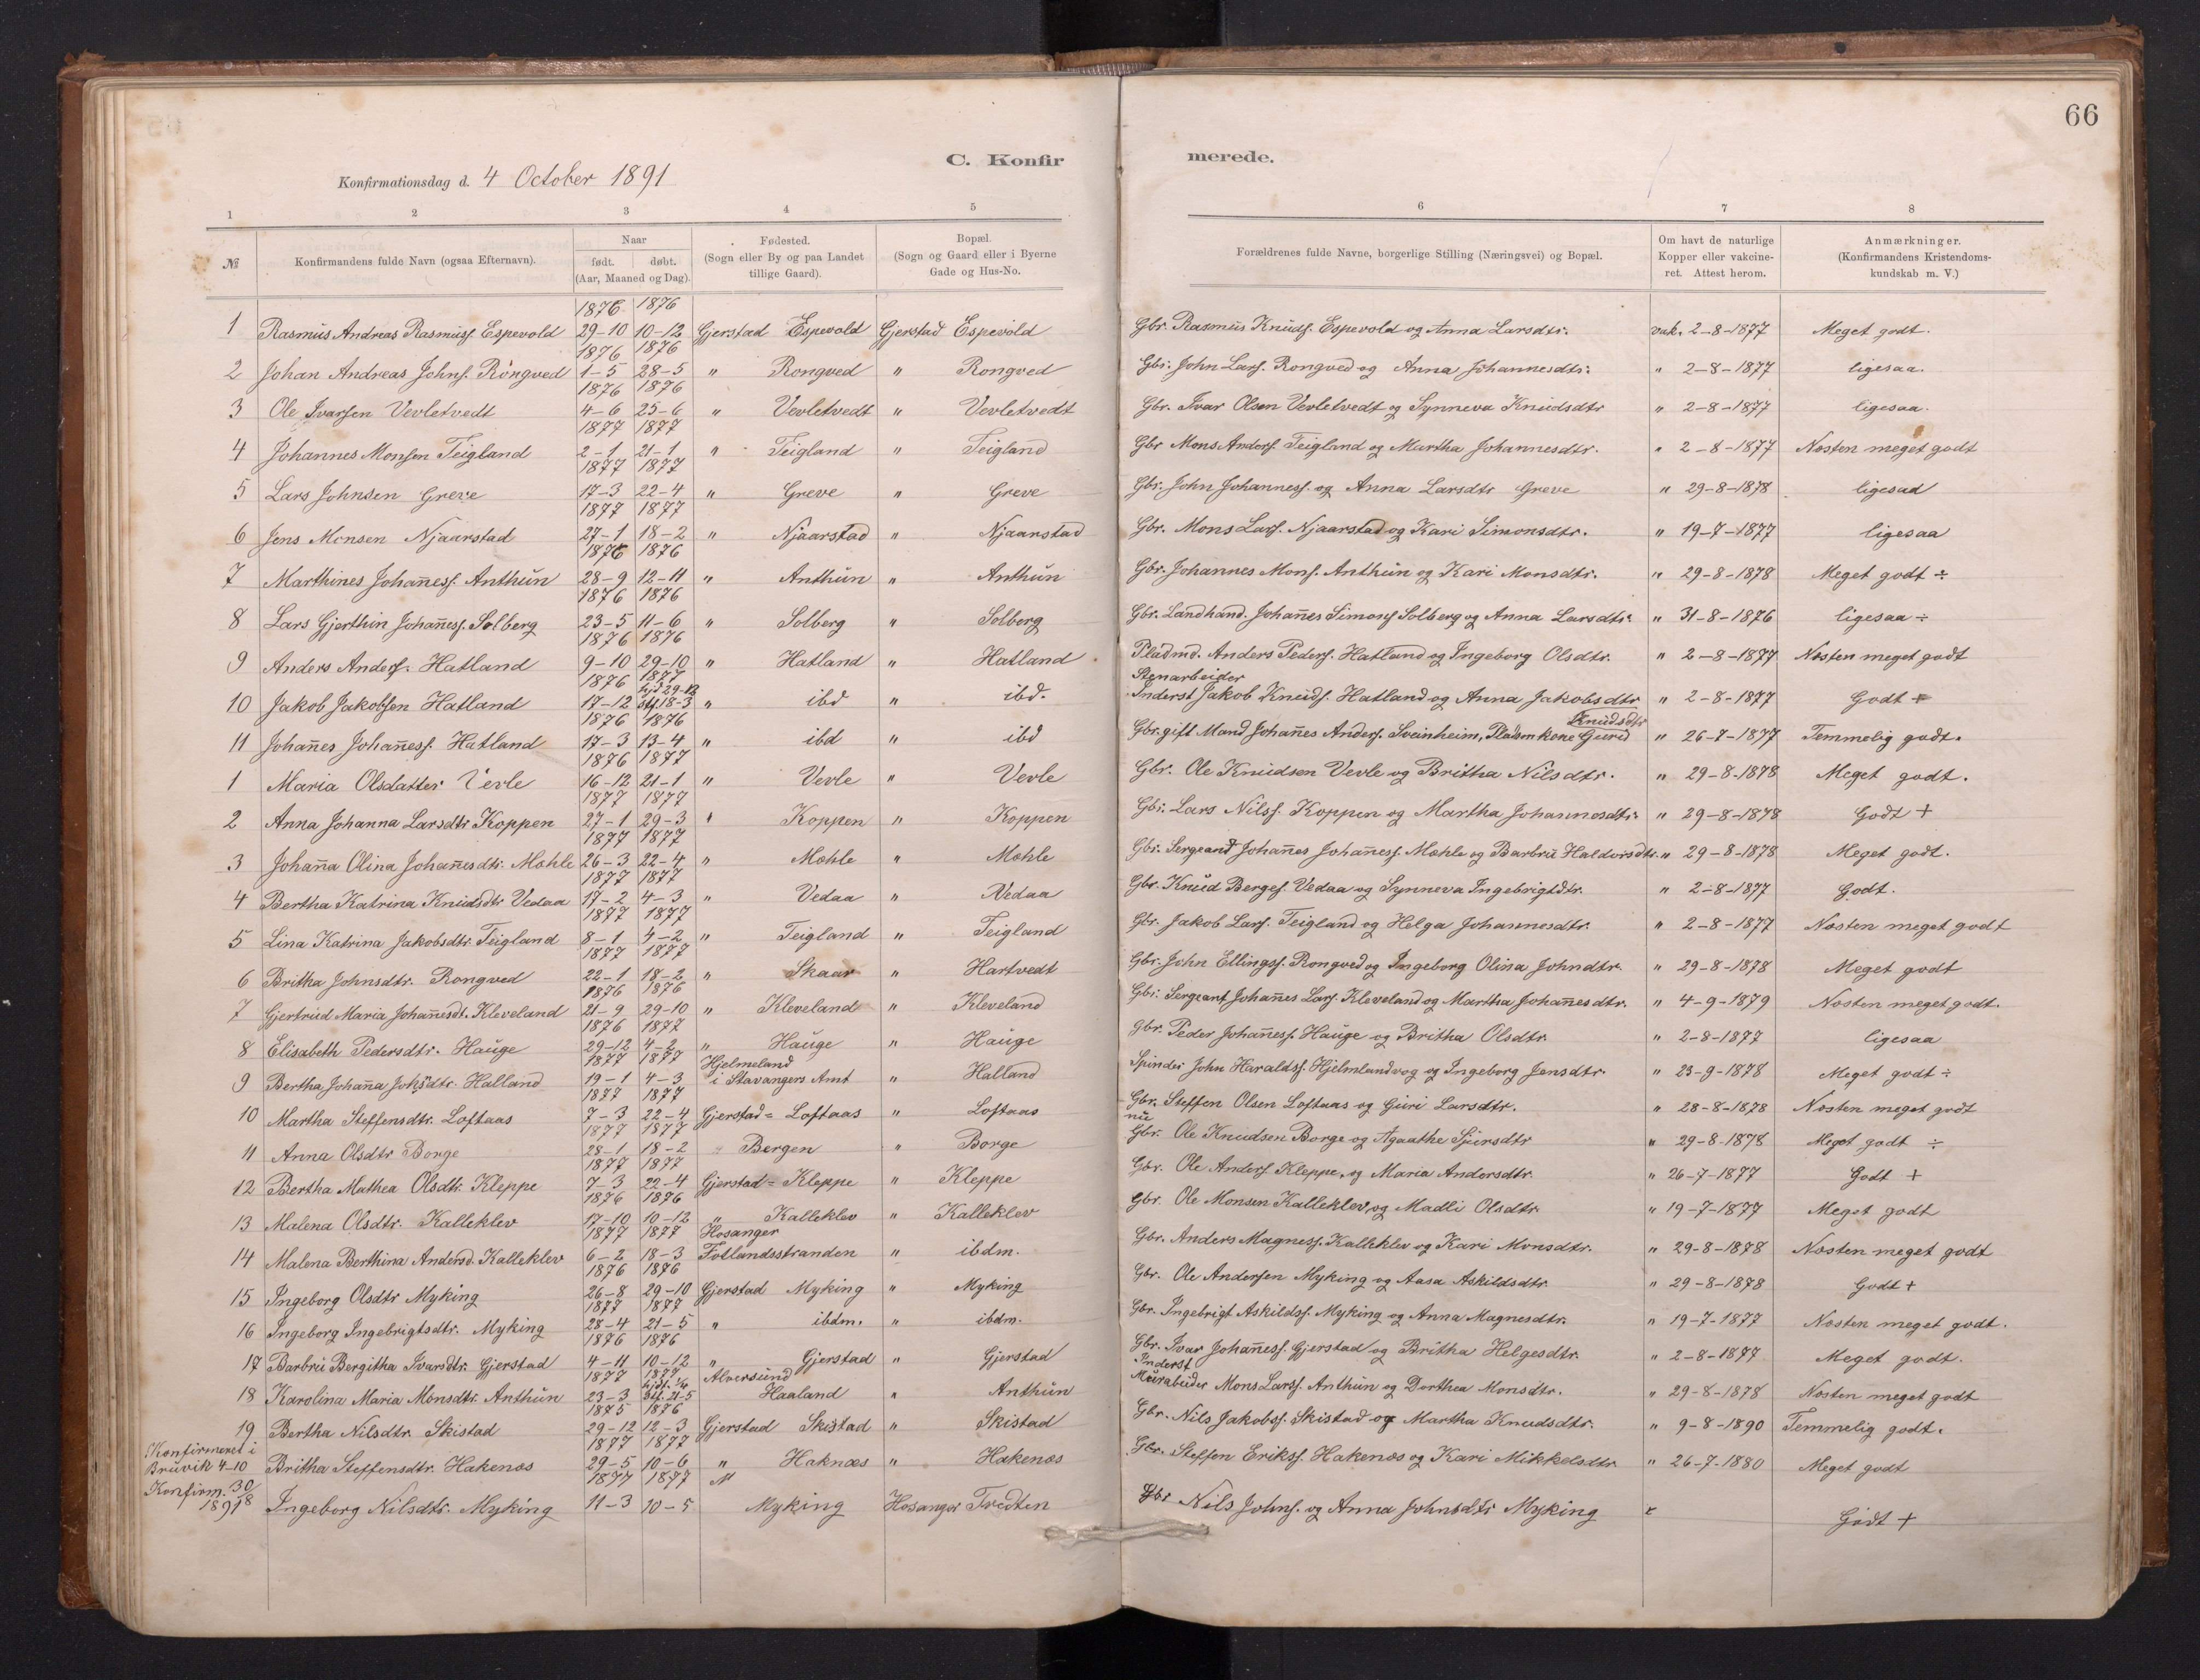 66
C. Konfirmerede.
Konfirmationsdag d. 4 October 1891
1 2 3 4 5 6 7 8
№ Konfirmandens fulde Navn (ogsaa Efternavn). Naar født. døbt. (Aar, Maaned og Dag). Fødested. (Sogn eller By og paa Landet tillige Gaard). Bopæl. (Sogn og Gaard eller i Byerne Gade og Hus-No. Forældrenes fulde Navne, borgerlige Stilling (Næringsvei) og Bopæl. Om havt de naturlige Kopper eller vakcineret. Attest herom. Anmærkninger. (Konfirmandens Kristendomskundskab m. V.)
1876 1876
1 Rasmus Andreas Rasmusf. Espevold 29-10 10-12 Gjerstad Espevold Gjerstad Espevold Gbr. Rasmus Knudf. Espevold og Anna Larsdtr. vak. 2-8-1877 Meget godt.
1876 1876
2 Johan Andreas Johnf. Röngved 1-5 28-5 " Rongved " Rongved Gbr. John Larf. Rongved og Anna Johannesdtr. " 2-8-1877 ligesaa.
1876 1876
3 Ole Ivarsen Vevletvedt 4-6 25-6 " Vevletvedt " Vevletvedt Gbr. Ivar Olsen Vevletvedt og Synneva Knudsdtr " 2-8-1877 ligesaa.
1877 1877
4 Johannes Monsen Teigland 2-1 21-1 " Teigland " Teigland Gbr Mons Andersf. Teigland og Martha Johannesdtr. " 2-8-1877 Næsten meget godt
1877 1877
5 Lars Johnsen Greve 17-3 22-4 " Greve " Greve Gbr. John Johannesf. og Anna Larsdtr Greve " 29-8-1878 ligesaa
1877 1877
6 Jens Monsen Njaarstad 27-1 18-2 " Njaarstad " Njaarstad Gbr. Mons Larf. Njaarstad og Kari Simonsdtr. " 19-7-1877 ligesaa
1876 1876
7 Marthines Johañesf. Anthun 28-9 12-11 " Anthun " Anthun Gbr. Johannes Monf. Anthun og Kari Monsdtr. " 29-8-1878 Meget godt ÷
1876 1876
8 Lars Gjerthin Johañesf. Solberg 23-5 11-6 " Solberg " Solberg Gbr. Landhand. Johañes Simonf Solberg og Anna Larsdtr. " 31-8-1876 ligesaa ÷
1876 1876
9 Anders Andersf. Hatland 9-10 29-10 " Hatland " Hatland Pladmd. Anders Pedersf. Hatland og Ingeborg Olsdtr. " 2-8-1877 Næsten meget godt
1876 1877 hjd 29-12 Stenarbeider
10 Jakob Jakobsen Hatland 17-12 stf 18-3 " ibd " ibd. Inderst Jakob Knudf. Hatland og Anna Jakobsdtr " 2-8-1877 Godt +
1876 1876 Knudsdtr
11 Johañes Johañesf. Hatland 17-3 13-4 " ibd " ibd Gbr. gift Mand Johañes Andersf. Sveinheim, Pladsmkone Gurid " 26-7-1877 Temmelig godt.
1876 1877
1 Maria Olsdatter Vevle 16-12 21-1 " Vevle " Vevle Gbr. Ole Knudsen Vevle og Britha Nilsdtr. " 29-8-1878 Meget godt.
1877 1877
2 Anna Johanna Larsdtr Koppen 27-1 29-3 " Koppen " Koppen Gbr. Lars Nilsf. Koppen og Martha Johannesdtr. " 29-8-1878 Godt +
1877 1877
3 Johaña Olina Johañesdtr. Mæhle 26-3 22-4 " Mæhle " Mæhle Gbr. Sergeant Johañes Johañesf. Mæhle og Barbru Haldorsdtr. " 29-8-1878 Meget godt.
1877 1877
4 Bertha Katrina Knudsdtr Vedaa 17-2 4-3 " Vedaa " Vedaa Gbr. Knud Bergef. Vedaa og Synneva Ingebrigtdtr. " 2-8-1877 Godt.
1877 1877
5 Lina Katrina Jakobsdtr. Teigland 8-1 4-2 " Teigland " Teigland Gbr. Jakob Larf. Teigland og Helga Johannesdtr. " 2-8-1877 Næsten meget godt
1877 1877
6 Britha Johnsdtr. Rongved 22-1 18-2 " Skaar " Hartvedt Gbr. John Ellingsf. Rongved og Ingeborg Olina Johndtr. " 29-8-1878 Meget godt
1876 1876
7 Gjertrud Maria Johañesdt. Kleveland 21-9 29-10 " Kleveland " Kleveland Gbr. Sergeant Johañes Larf. Kleveland og Martha Johañesdtr. " 4-9-1879 Næsten meget godt.
1876 1877
8 Elisabeth Pedersdtr. Hauge 29-12 4-2 " Hauge " Hauge gbr. Peder Johañesf. Hauge og Britha Olsdtr. " 2-8-1877 ligesaa
1877 1877 Hjelmeland
9 Bertha Johaña Johsdtr. Halland 19-1 4-3 i Stavangers Amt " Halland Spinder John Haraldsf. Hjelmlandvog og Ingeborg Jensdtr. " 23-9-1878 Meget godt ÷
1877 1877
10 Martha Steffensdtr. Loftaas 7-3 22-4 Gjerstad = Loftaas " Loftaas Gbr. Steffen Olsen Loftaas og Guri Larsdtr. " 28-8-1878 Næsten meget godt
1877 1877 nu
11 Anna Olsdtr Borge 28-1 18-2 " Bergen " Borge Gbr. Ole Knudsen Borge og Agaathe Sjursdtr " 29-8-1878 Meget godt ÷
1877 1877
12 Bertha Mathea Olsdtr. Kleppe 7-3 22-4 Gjerstad = Kleppe " Kleppe Gbr. Ole Andersf. Kleppe og Maria Andersdtr. " 26-7-1877 Godt +
1876 1876
13 Malena Olsdtr. Kalleklev 17-10 10-12 " Kalleklev " Kalleklev Gbr. Ole Monsen Kalleklev og Madli Olsdtr. " 19-7-1877 Meget godt
1877 1877 Hosanger
14 Malena Berthina Andersd. Kalleklev 6-2 18-3 Fotlandsstranden " ibdm. Gbr. Anders Magnesf. Kalleklev og Kari Monsdtr. " 29-8-1878 Næsten meget godt
1876 1876
15 Ingeborg Olsdtr Myking 26-8 29-10 Gjerstad Myking " Myking Gbr. Ole Andersen Myking og Aasa Askildsdtr. " 29-8-1878 Godt +
1877 1877
16 Ingeborg Ingebrigtsdtr. Myking 28-4 21-5 " ibdm. " ibdm. Gbr. Ingebrigt Askildsf. Myking og Anna Magnesdtr. " 19-7-1877 Næsten meget godt.
1876 1876
17 Barbru Bergitha Ivarsdtr. Gjerstad 4-11 10-12 " Gjerstad " Gjerstad Gbr. Ivar Johañesf. Gjerstad og Britha Helgesdtr. " 2-8-1877 Meget godt.
1877 1877 Alversund Inderst
18 Karolina Maria Monsdtr. Anthun 23-3 stf. 21-5 Haaland " Anthun Murabeider Mons Larsf. Anthun og Dorthea Monsdtr. " 29-8-1878 Næsten meget godt
1875 1876
19 Bertha Nilsdtr. Skistad 29-12 12-3 Gjerstad Skistad " Skistad Gbr. Nils Jakobsf. Skistad og Martha Knudsdtr. " 9-8-1890 Temmelig godt.
Konfirmeret i 1877 1877
Bruvik 4-10 Britha Steffensdtr. Hakenæs 29-5 10-6 " Haknæs " Hakenæs Gbr. Steffen Eriksf. Hakenæs og Kari Mikkelsdtr " 26-7-1880 Meget godt
Konfirm. 30/8 1877 1877 "
1891 Ingeborg Nilsdtr. Myking 11-3 10-5 Myking Hosanger Tvedten Gbr Nils Johnf. og Anna Johnsdtr Myking Godt +